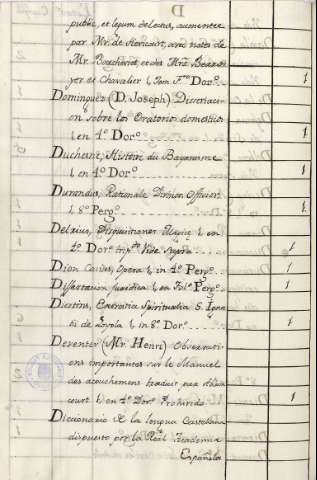 public, et legum delectus, aumentee
par Mr. de Hericourt, avec notes de
Mr. Bouchevret, et des Mrs. Beroyer
et Chevalier 1 Tom Fº Dorº 1
Dominguez (D. Joseph) Disertacion
sobre los Oratorios domesticos
1 en 4º Dorº 1
Duchesne, Histoire du Bayanisme
1 en 4º Dorº 1
Durandus, Rationale Divinor. Officior.
1 8º Pergº 1
Delrius, Disquisitiones Magicæ 1 en
4º Dorº Vide supra 1
Dion Casius, Opera 1 in 4º Pergº 1
Dissertacion Juridica 1 en Folº Pergº 1
Diertins, Exercitia Spiritualia S. Ignatii
de Loyola 1 in 8º Dorº 1
Deventer (Mr. Henri) Observations
importantes sur le Manuel
des acouchemens traduit par
1 en 4º Dorº Prohibido 1
Diccionario de la lengua Castellana
dispuesto por la Real Academia
Española